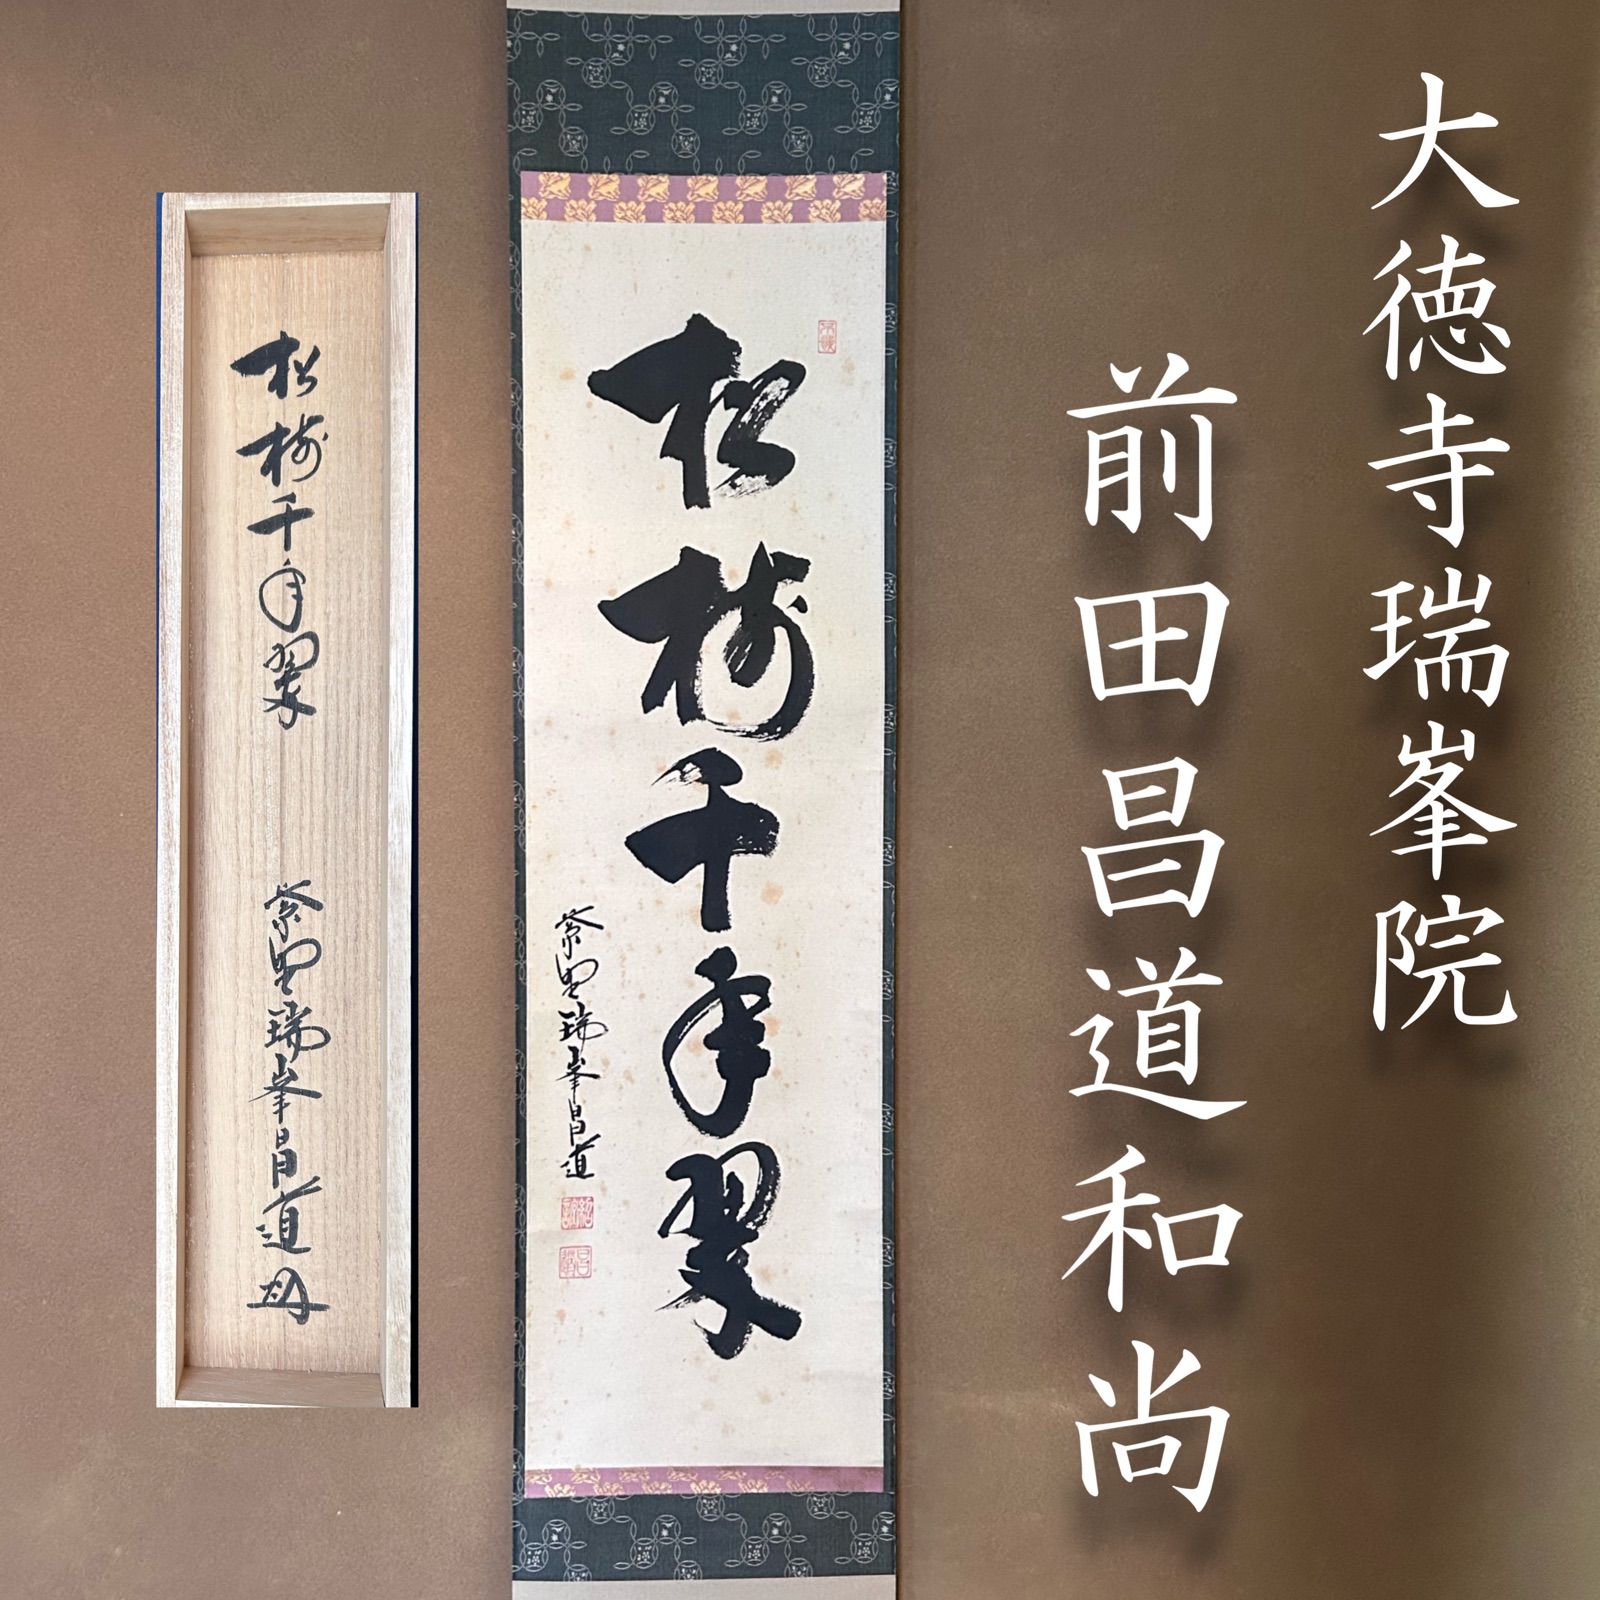 大徳寺瑞峯院
前田昌道和尚
松樹千年翠
紫野瑞峯昌道
松樹千年翠
紫野瑞峯昌道